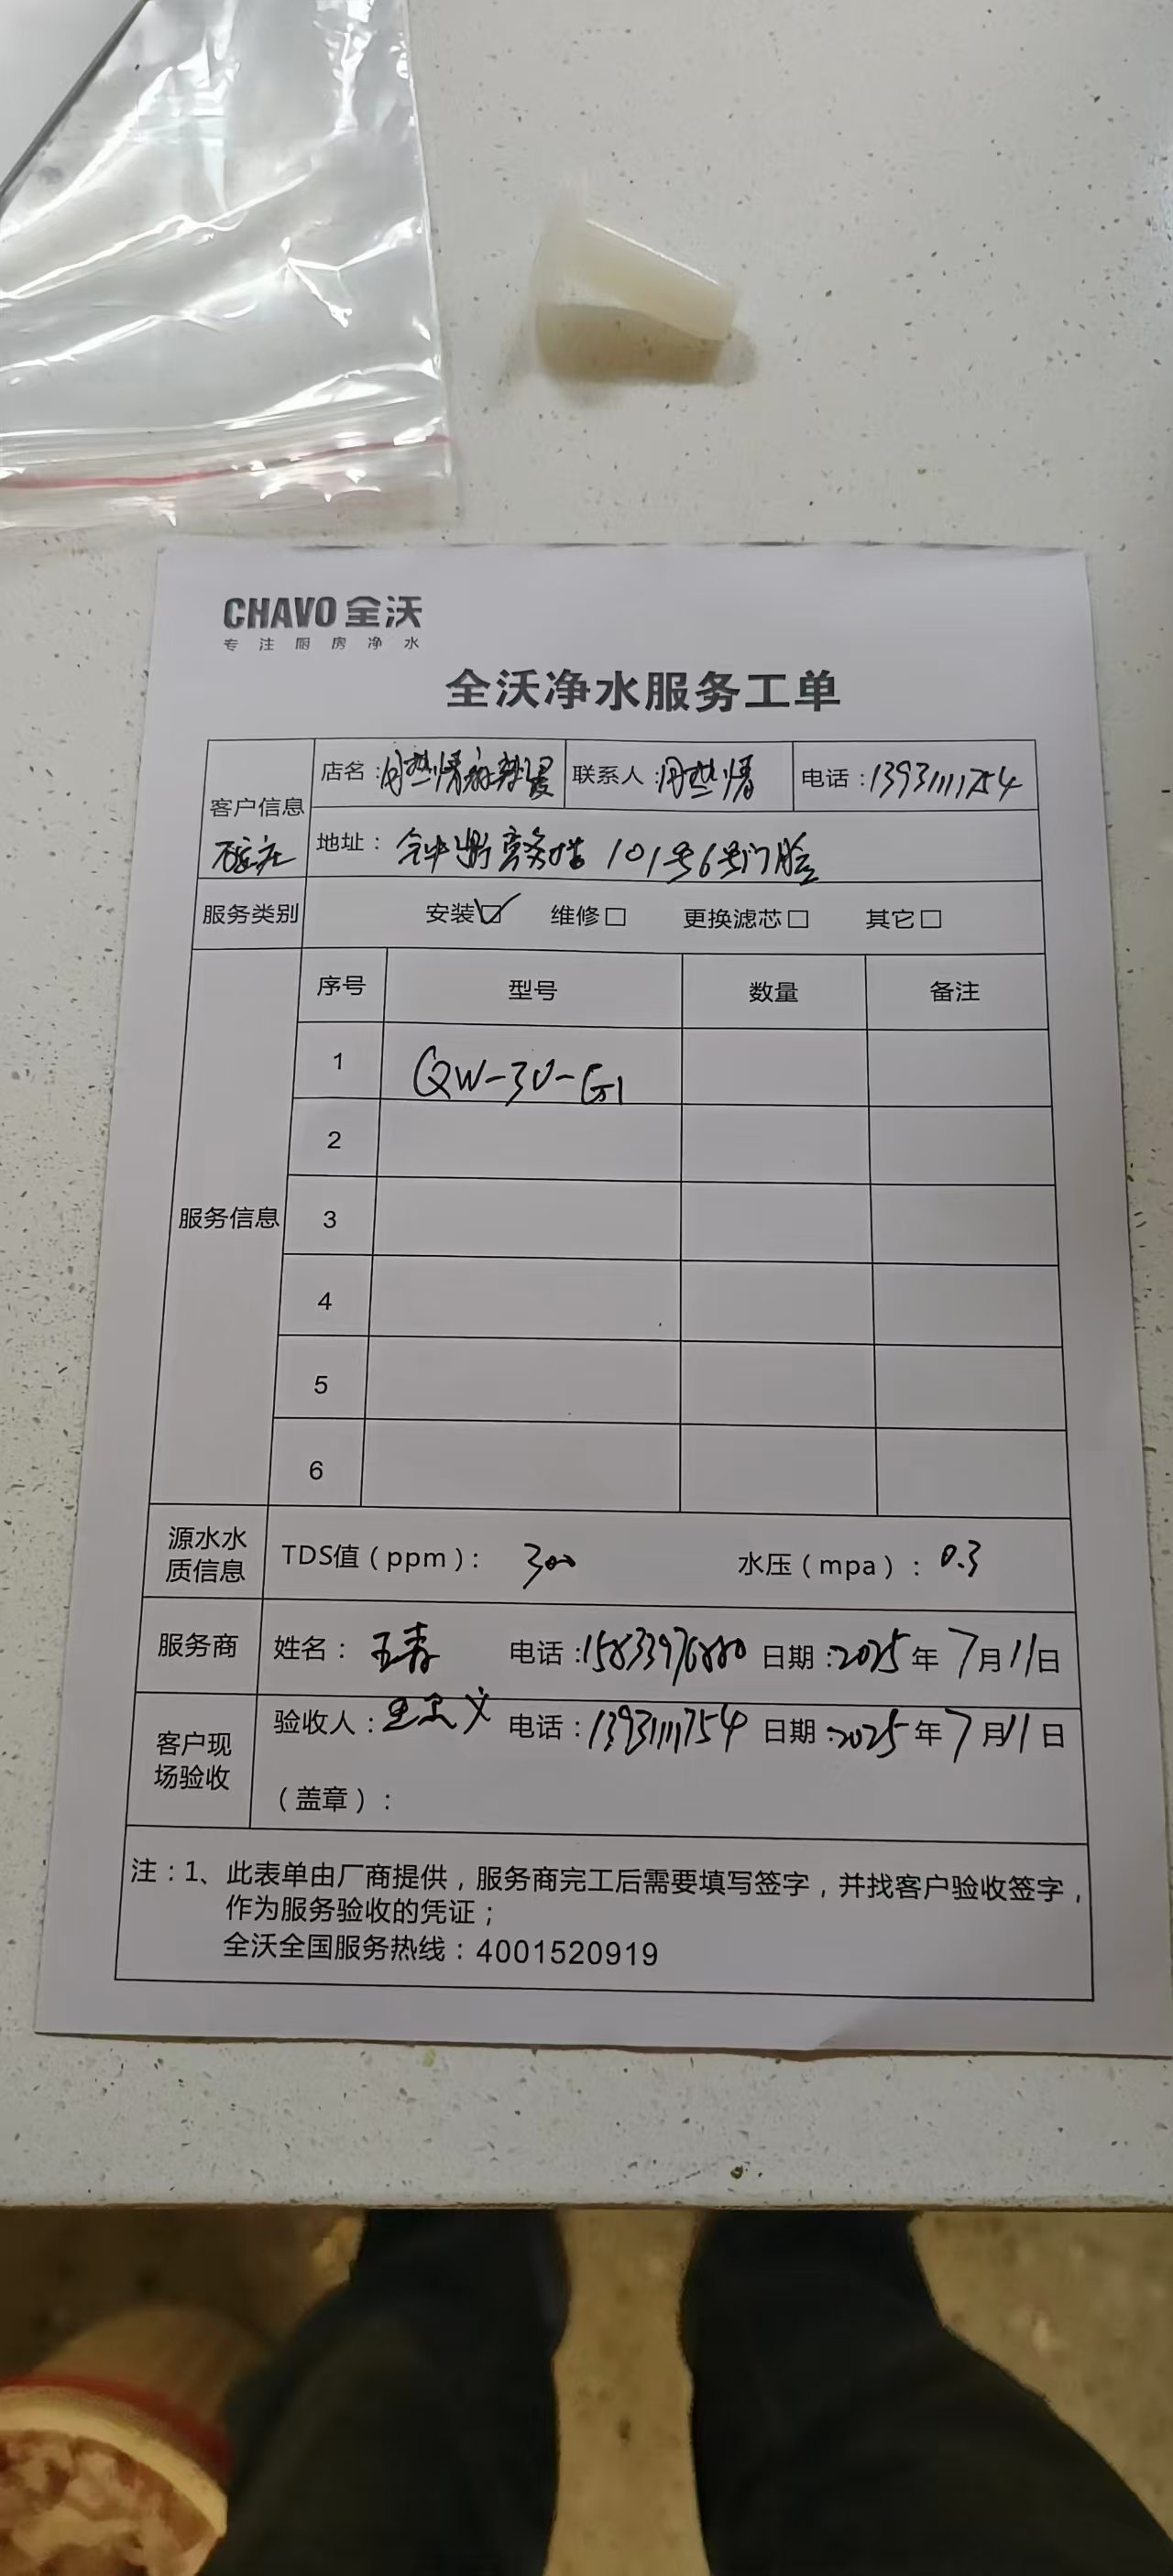 CHAVO 全沃
专注厨房净水
全沃净水服务工单
客户信息
店名：周热情麻辣烫
联系人：周热情
电话：13931111754
石家庄
地址：101号6号门脸
服务类别 安装☑ 维修□ 更换滤芯□ 其它□
服务信息
序号 型号 数量 备注
1 QW-3U-G1
2
3
4
5
6
源水水质信息
TDS值（ppm）：300 水压（mpa）：0.3
服务商 姓名：王春 电话： 日期：2025年7月11日
客户现场验收
验收人： 电话：13931111754 日期：2025年7月11日
（盖章）：
注：1、此表单由厂商提供，服务商完工后需要填写签字，并找客户验收签字，
作为服务验收的凭证；
全沃全国服务热线：4001520919